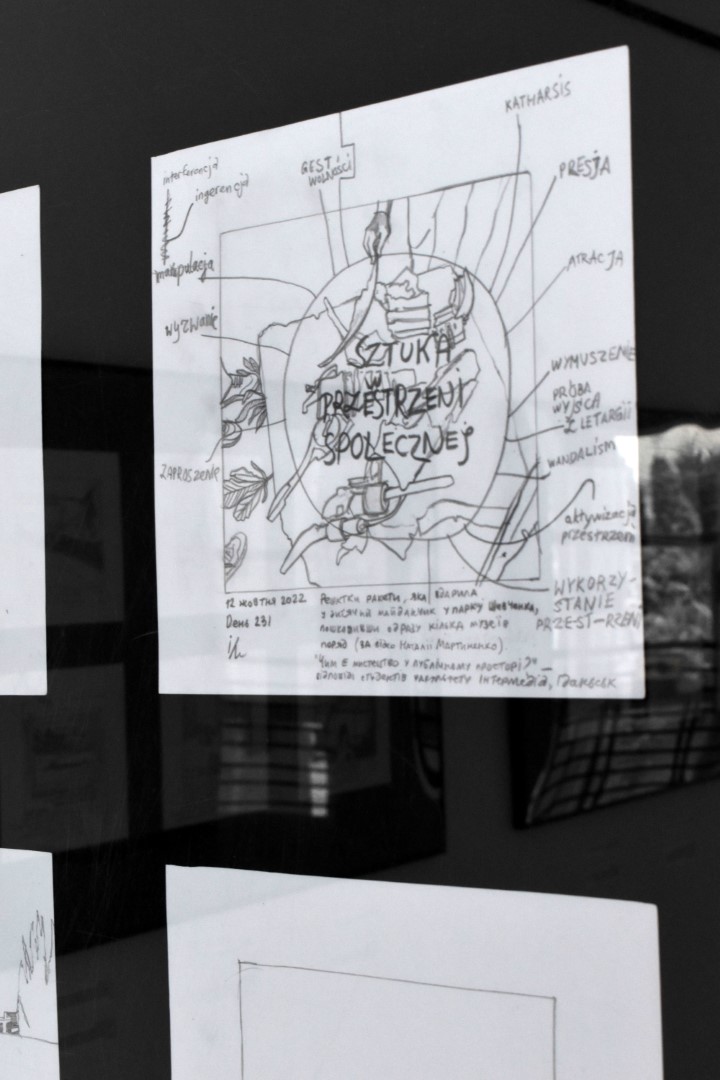 KATHARSIS
interferencja
ingerencja
GEST
WOLNOŚCI
PRESJA
manipulacja
ATRACJA
wyzwanie
SZTUKA
W
PRZESTRZENI
SPOŁECZNEJ
WYMUSZENIE
PRÓBA
WYJŚCA
Z LETARGII
WANDALISM
ZAPROSZENIE
aktywizacja
przestrzeni
WYKORZY-
STANIE
PRZEST-RZENI
12 жовтня 2022
День 231
Рештки ракети, яка вдарила
у дитячий майданчик у парку Шевченка,
пошкодивши одразу кілька музеїв
поряд (за відео Наталії Мартиненко).
"Чим є мистецтво у публічному просторі?" —
відповіді студентів факультету Intermedia, Гданськ